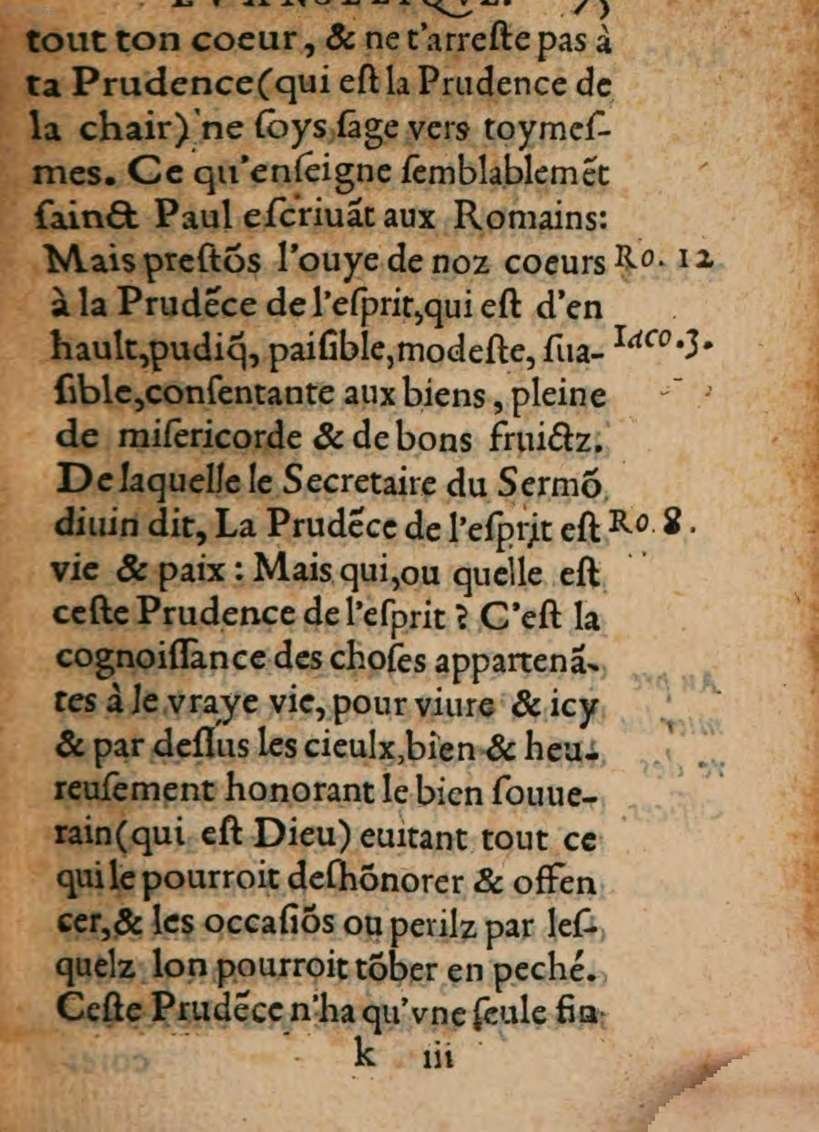 tout ton coeur, & ne t'arreſte pas à
ta Prudence(qui eſt la Prudence de
la chair) ne ſoys ſage vers toymeſ-
mes. Ce qu'enſeigne ſemblablemẽt
ſainct Paul eſcriuãt aux Romains:
Mais preſtõs l'ouye de noz coeurs Ro. 12
à la Prudẽce de l'eſprit,qui eſt d'en
hault,pudiq̃, paiſible,modeſte, ſua- Iaco.3.
ſible,conſentante aux biens, pleine
de miſericorde & de bons fruictz.
De laquelle le Secretaire du Sermõ
diuin dit, La Prudẽce de l'eſprit eſt Ro. 8.
vie & paix : Mais qui,ou quelle eſt
ceſte Prudence de l'eſprit ? C'eſt la
cognoiſſance des choſes appartenã-
tes à le vraye vie, pour viure & icy
& par deſſus les cieulx,bien & heu-
reuſement honorant le bien ſouue-
rain(qui eſt Dieu) euitant tout ce
qui le pourroit deſhõnorer & offen
cer,& les occaſiõs ou perilz par leſ-
quelz lon pourroit tõber en peché.
Ceſte Prudẽce n'ha qu'vne ſeule fin
k iii